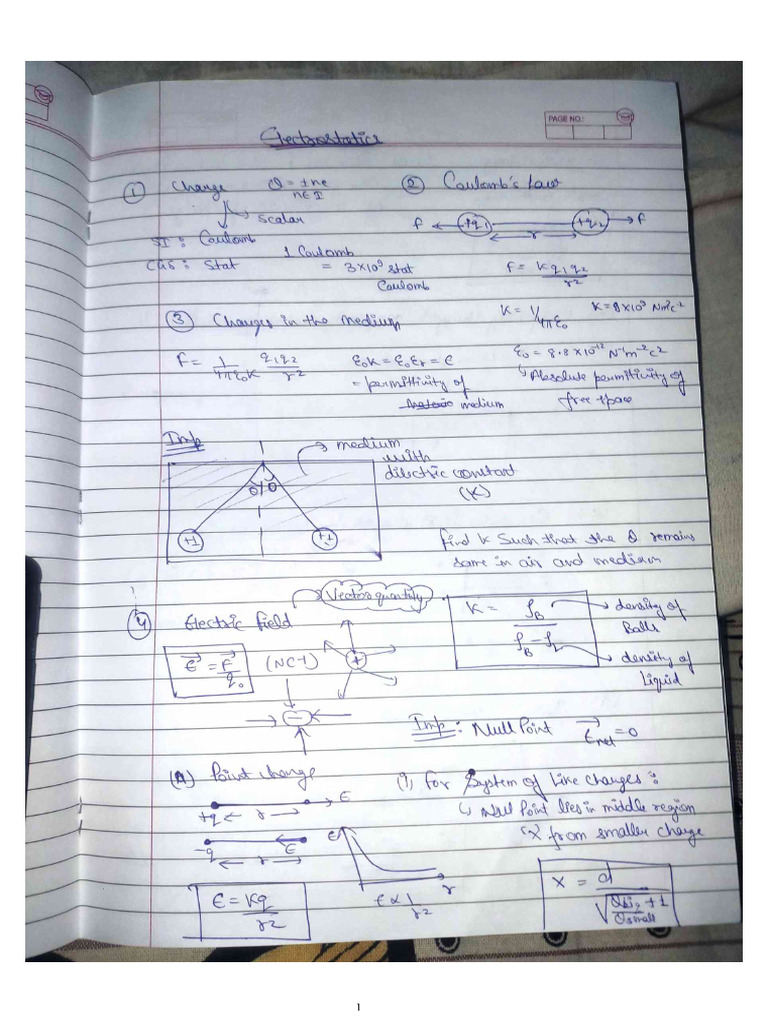 PAGE NO.:
Electrostatics
① Charge Q = ±ne
n∈I
scalar
SI : Coulomb
CGS : Stat
1 Coulomb
= 3×10⁹ stat
Coulomb
② Coulomb's Law
F +q₁ +q₂ F
r
F = K q₁q₂/r²
K = 1/4πε₀ K = 9×10⁹ Nm²c²
ε₀ = 8.8×10⁻¹² N⁻¹m⁻²c²
↳ Absolute permitivity of
free space
③ Charges in the medium
F = 1/4πε₀K q₁q₂/r² ε₀K = ε₀εr = ε
= permittivity of
medium
Imp
medium
with
dilectric constant
(K)
θ θ
+1 +1
find K Such that the θ remains
same in air and medium
K = ρB/ρB-ρL
density of
Balls
density of
liquid
④ Electric field
Vector quantity
E = F/q₀ (NC-1)
+
−
Imp : Null Point Enet = 0
(A) Point charge
+q r E
-q r E
E r
E = Kq/r²
E ∝ 1/r²
(i) For System of Like charges :
↳ Null Point lies in middle region
'x' from smaller charge
x = d/√Qbig/Qsmall + 1
1